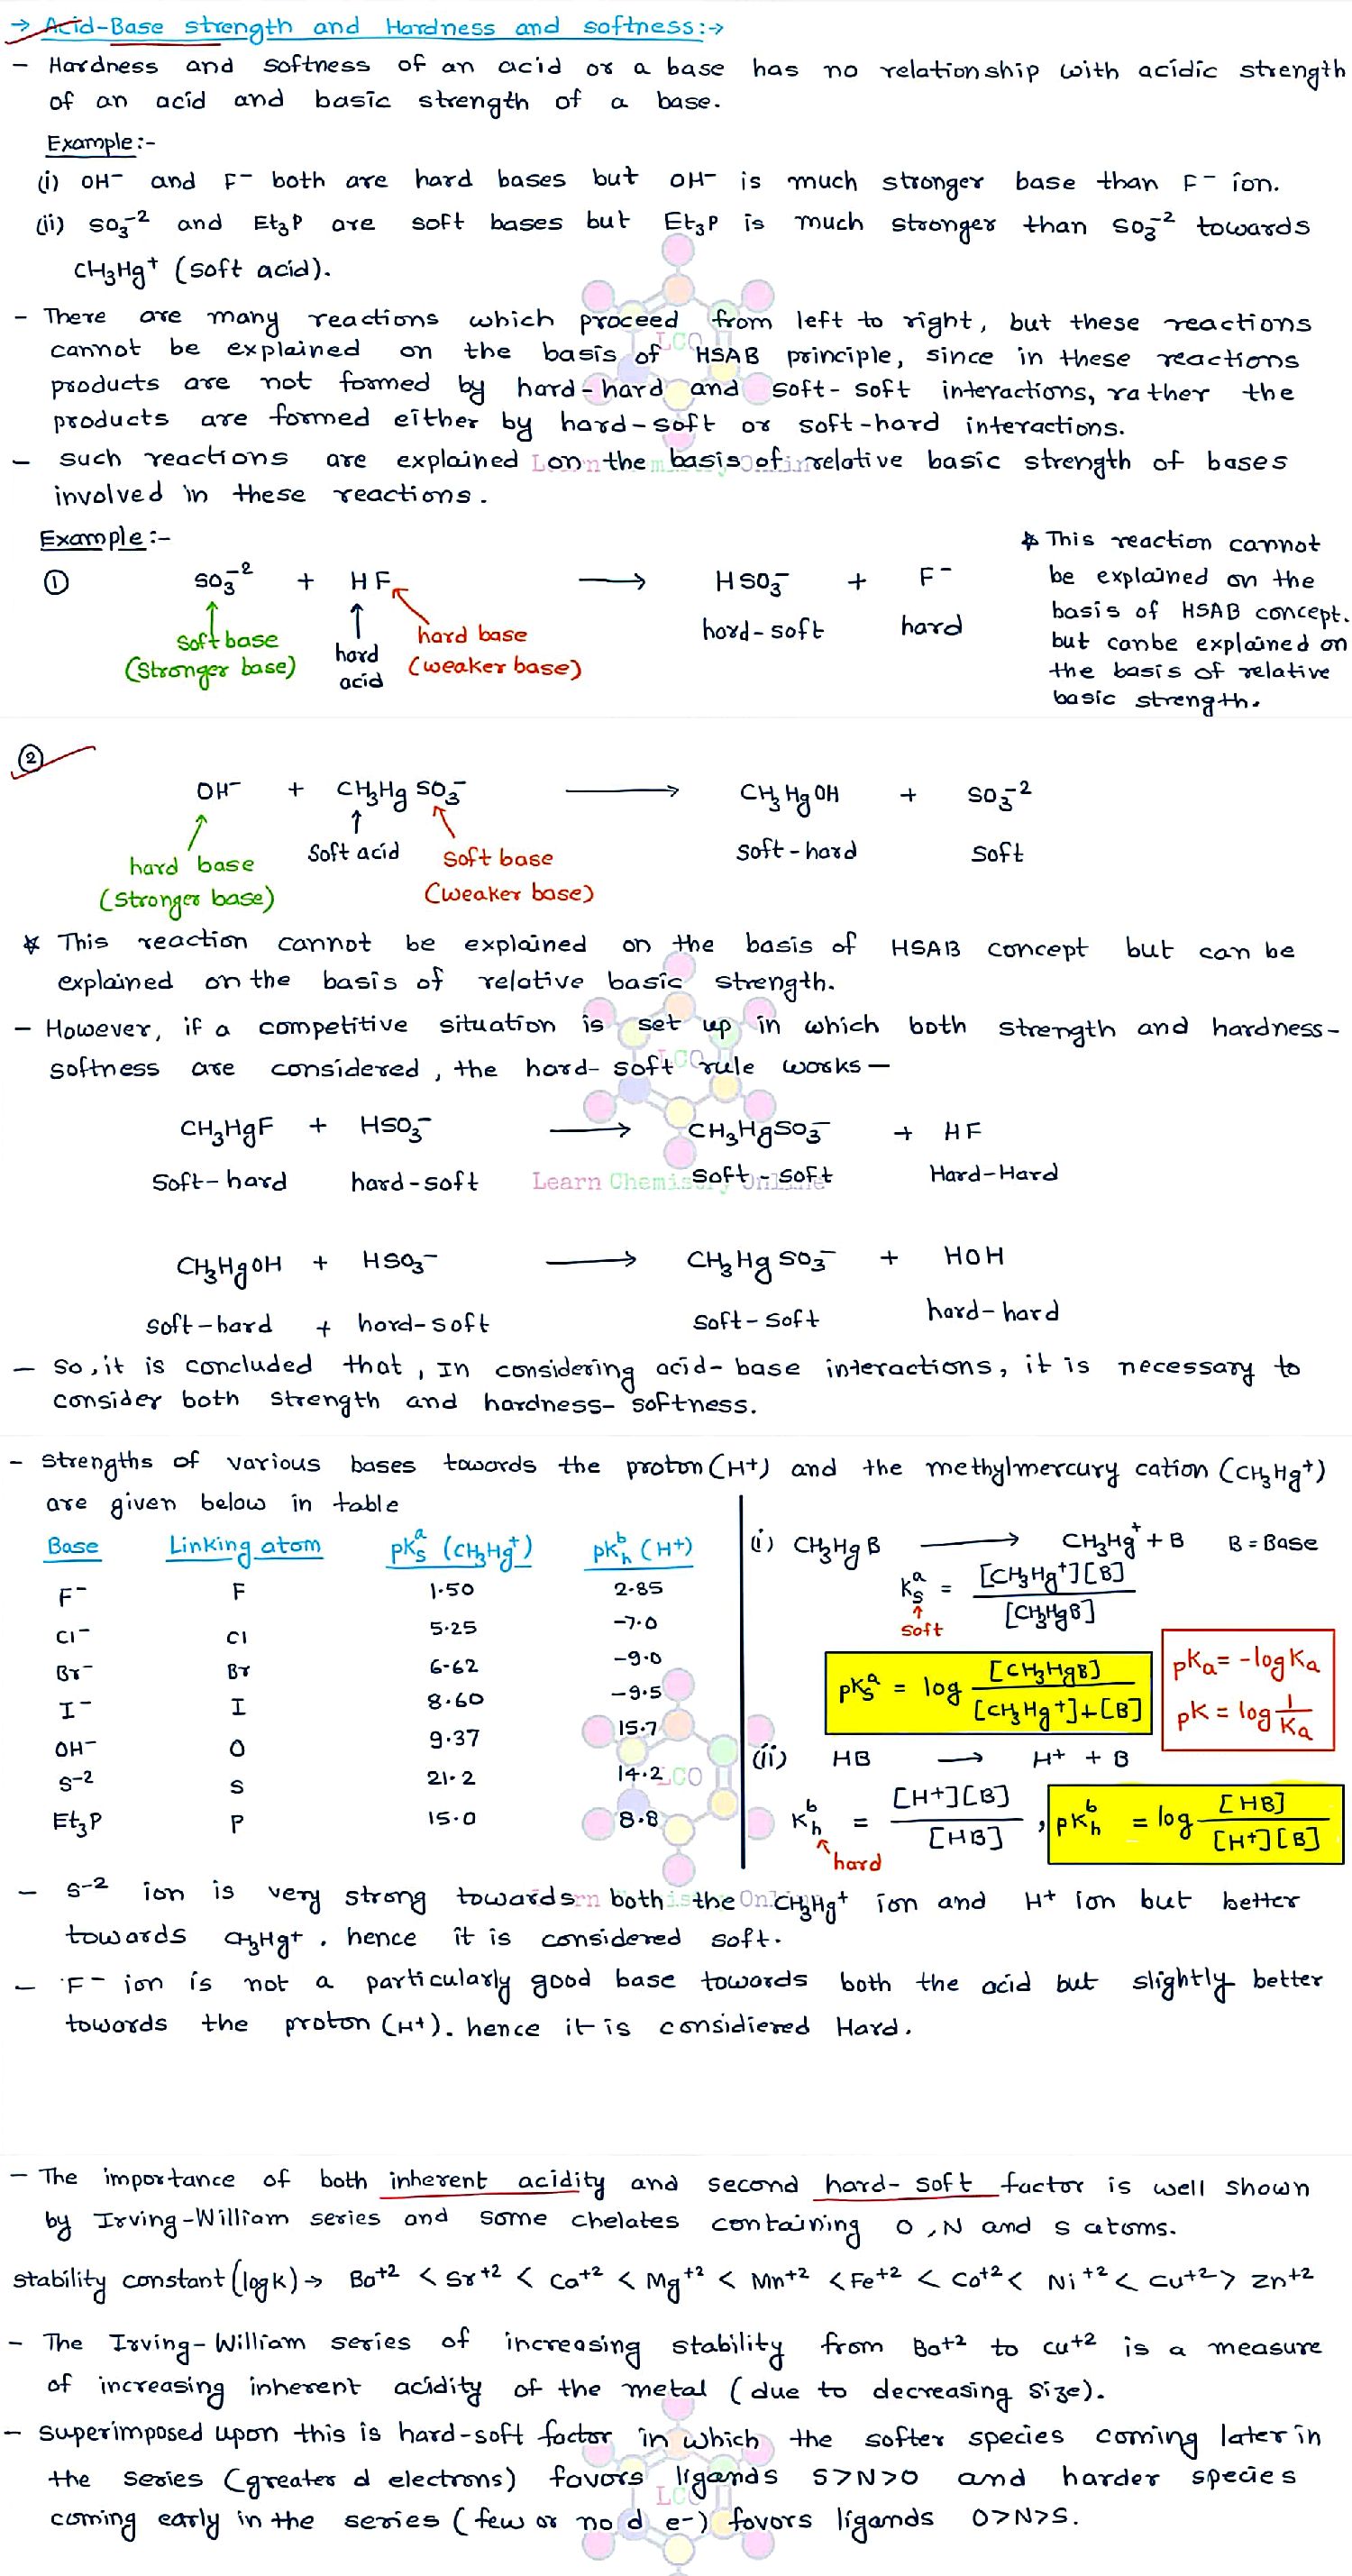 → Acid-Base strength and Hardness and softness:→
- Hardness and softness of an acid or a base has no relationship with acidic strength
of an acid and basic strength of a base.
Example:-
(i) OH⁻ and F⁻ both are hard bases but OH⁻ is much stronger base than F⁻ ion.
(ii) SO₃⁻² and Et₃P are soft bases but Et₃P is much stronger than SO₃⁻² towards
CH₃Hg⁺ (soft acid).
- There are many reactions which proceed from left to right, but these reactions
cannot be explained on the basis of HSAB principle, since in these reactions
products are not formed by hard-hard and soft-soft interactions, rather the
products are formed either by hard-soft or soft-hard interactions.
- such reactions are explained on the basis of relative basic strength of bases
involved in these reactions.
Example:-
① SO₃⁻² + HF ⟶ HSO₃⁻ + F⁻
soft base (Stronger base) hard acid hard base (weaker base) hard-soft hard
* This reaction cannot
be explained on the
basis of HSAB concept.
but canbe explained on
the basis of relative
basic strength.
②
OH⁻ + CH₃Hg SO₃⁻ ⟶ CH₃HgOH + SO₃⁻²
hard base Soft acid Soft base soft-hard soft
(Stronger base) (weaker base)
* This reaction cannot be explained on the basis of HSAB concept but can be
explained on the basis of relative basic strength.
- However, if a competitive situation is set up in which both strength and hardness-
softness are considered, the hard-soft rule works—
CH₃HgF + HSO₃⁻ ⟶ CH₃HgSO₃⁻ + HF
Soft-hard hard-soft Soft-Soft Hard-Hard
CH₃HgOH + HSO₃⁻ ⟶ CH₃HgSO₃⁻ + HOH
soft-hard + hard-soft soft-soft hard-hard
- So, it is concluded that, In considering acid-base interactions, it is necessary to
consider both strength and hardness-softness.
- strengths of various bases towards the proton (H⁺) and the methylmercury cation (CH₃Hg⁺)
are given below in table
Base Linking atom pKₛᵃ (CH₃Hg⁺) pKₕᵇ (H⁺)
F⁻ F 1.50 2.85
Cl⁻ Cl 5.25 -7.0
Br⁻ Br 6.62 -9.0
I⁻ I 8.60 -9.5
OH⁻ O 9.37 15.7
S⁻² S 21.2 14.2
Et₃P P 15.0 8.8
(i) CH₃HgB ⟶ CH₃Hg⁺ + B B = Base
Kₛᵃ = [CH₃Hg⁺][B] / [CH₃HgB]
soft
pKₛᵃ = log [CH₃HgB] / [CH₃Hg⁺]+[B]
pKa = -logKa
pK = log 1/Ka
(ii) HB ⟶ H⁺ + B
Kₕᵇ = [H⁺][B] / [HB] , pKₕᵇ = log [HB] / [H⁺][B]
hard
- S⁻² ion is very strong towards both the CH₃Hg⁺ ion and H⁺ ion but better
towards CH₃Hg⁺. hence it is considered soft.
- F⁻ ion is not a particularly good base towards both the acid but slightly better
towards the proton (H⁺). hence it is considiered Hard.
- The importance of both inherent acidity and second hard-soft factor is well shown
by Irving-William series and some chelates containing O, N and S atoms.
stability constant (log K) → Ba⁺² < Sr⁺² < Ca⁺² < Mg⁺² < Mn⁺² < Fe⁺² < Co⁺² < Ni⁺² < Cu⁺² > Zn⁺²
- The Irving-William series of increasing stability from Ba⁺² to Cu⁺² is a measure
of increasing inherent acidity of the metal (due to decreasing size).
- superimposed upon this is hard-soft factor in which the softer species coming later in
the series (greater d electrons) favors ligands S>N>O and harder species
coming early in the series (few or no d e-) favors ligands O>N>S.
LCO
Learn Chemistry Online